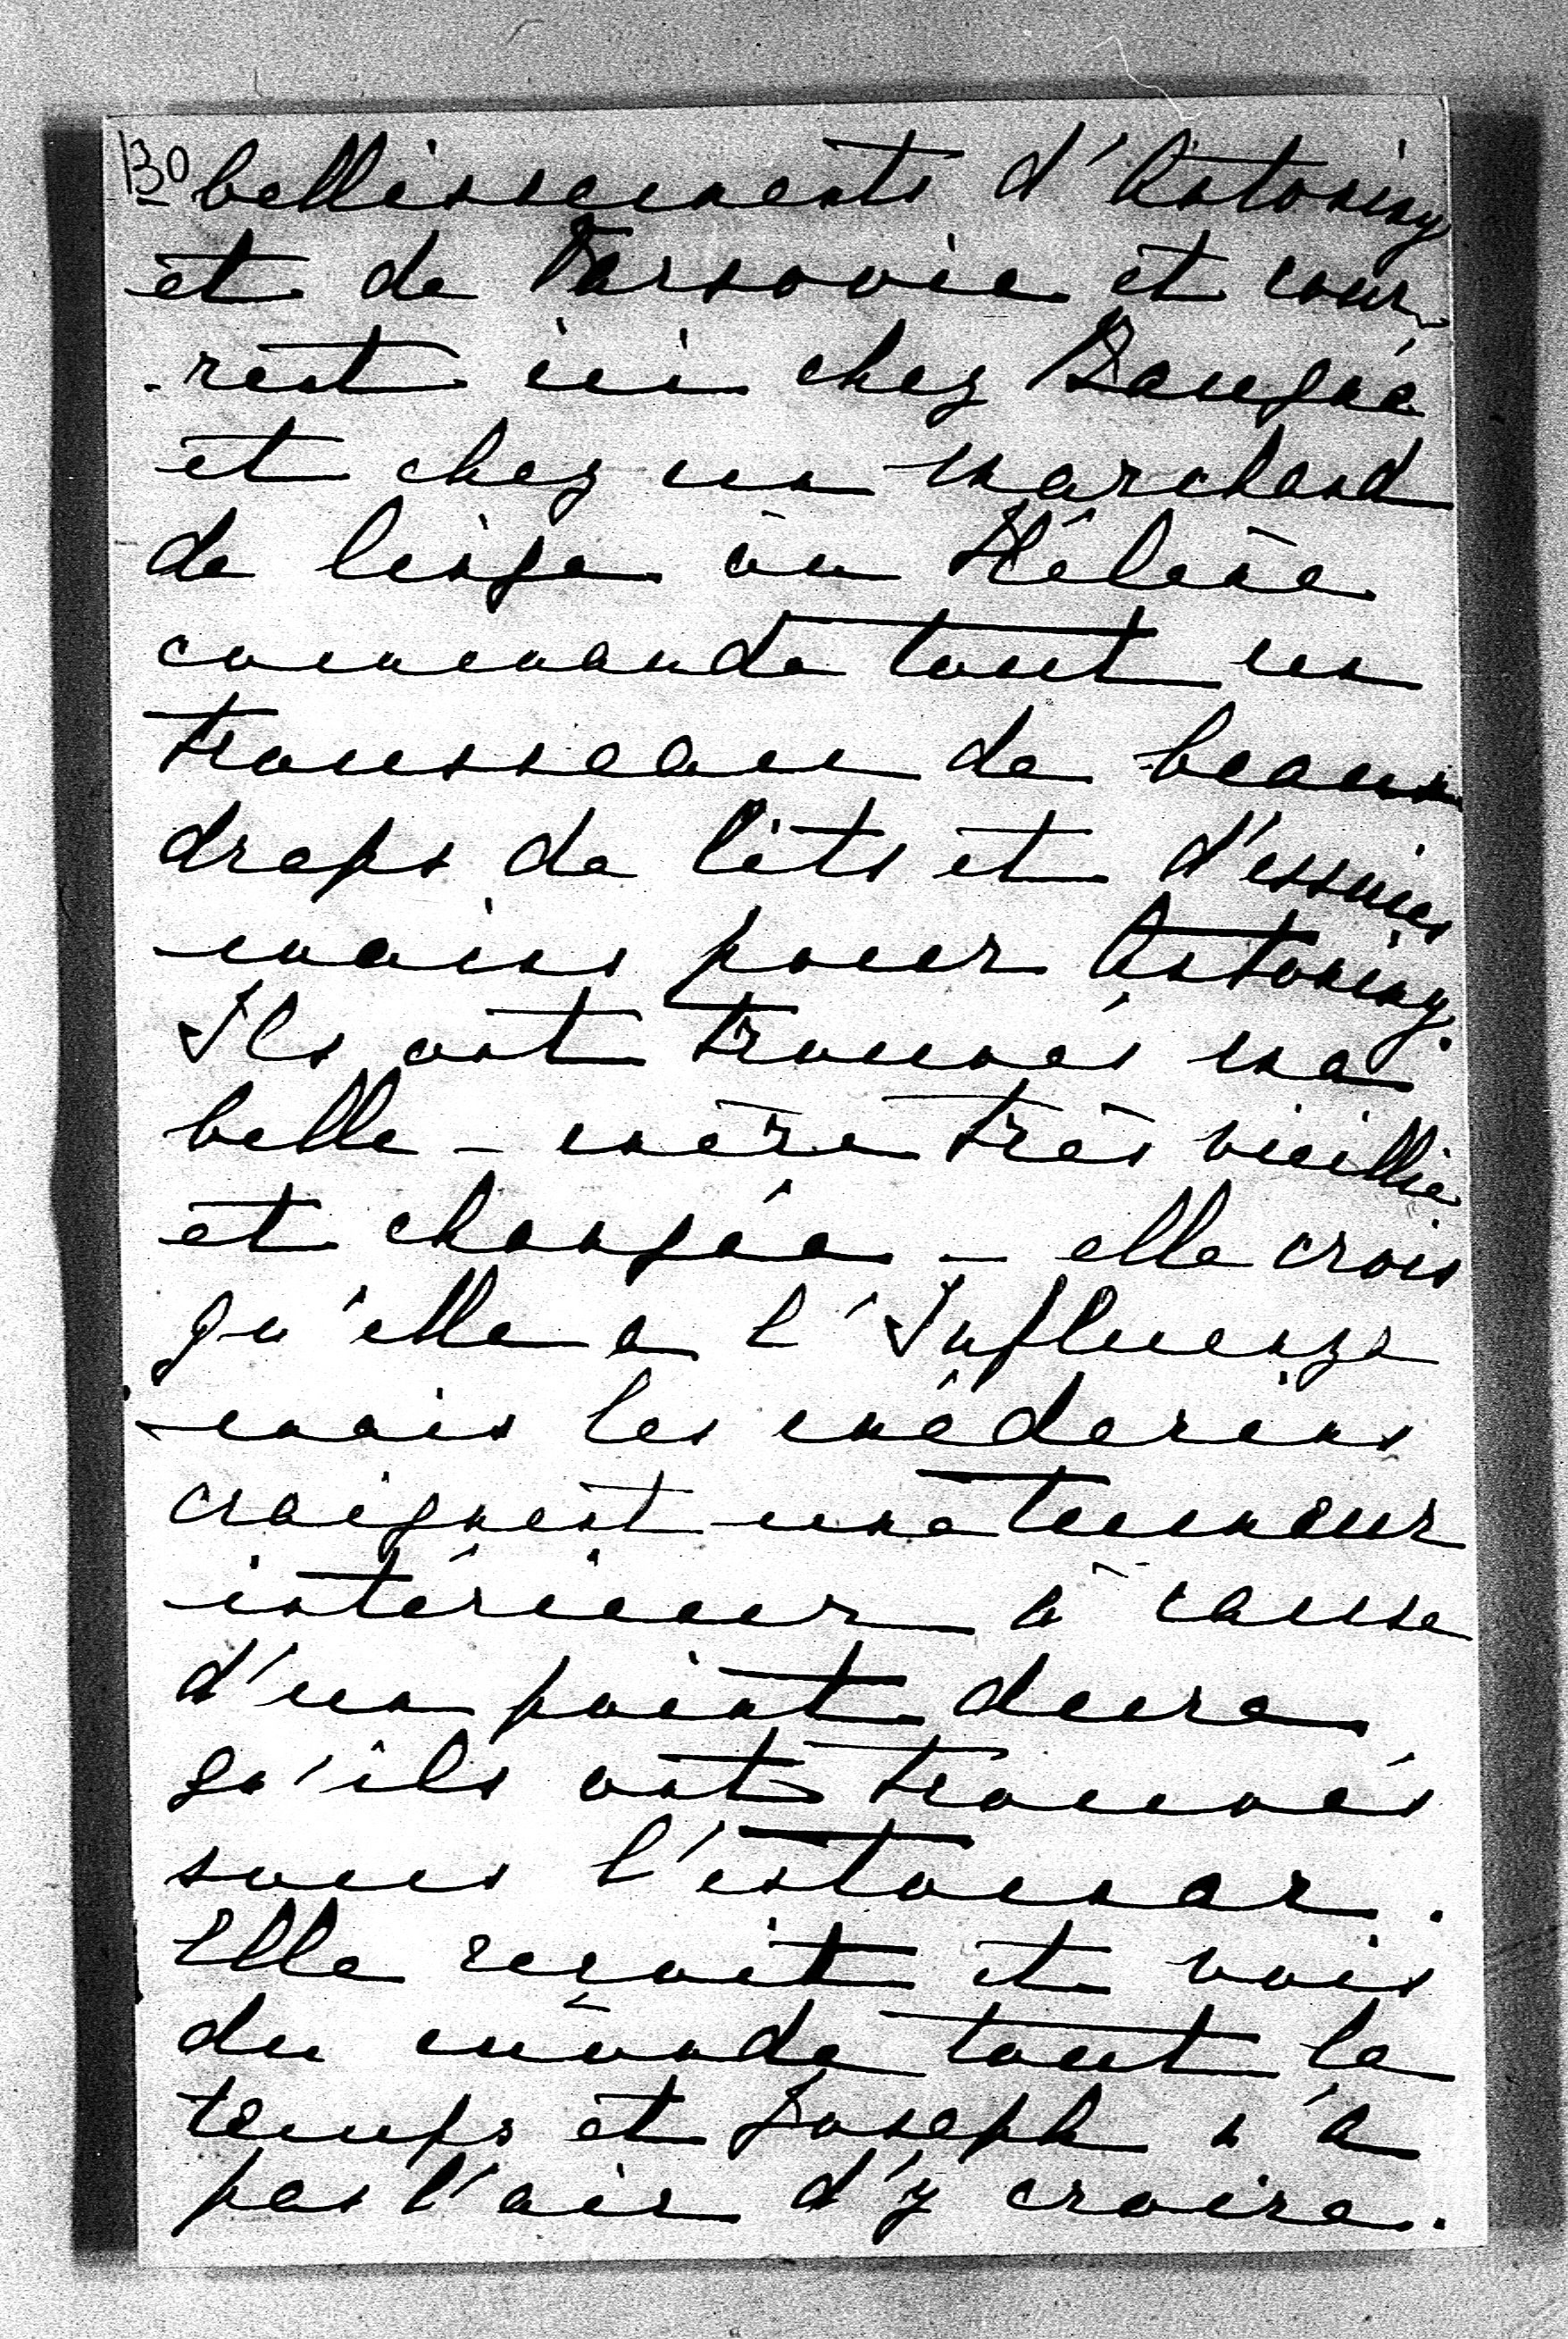 130 bellissements d'Antoniny
et de Varsovie et cour-
-rent ici chez Dangné
et chez un marchand
de linge où Hélène
commanda tout un
trousseau de beaux
draps de lits et d'essuies
mains pour Antoniny.
Ils ont trouvés ma
belle-mère très vieillie
et changée - elle crois
qu'elle a l'Influenza
mais les médecins
craignent une tumeur
intérieur à cause
d'un point dure
qu'ils ont trouvés
sous l'estomac.
Elle reçoit et vois
du monde tout le
temps et Joseph n'a
pas l'air d'y croire.